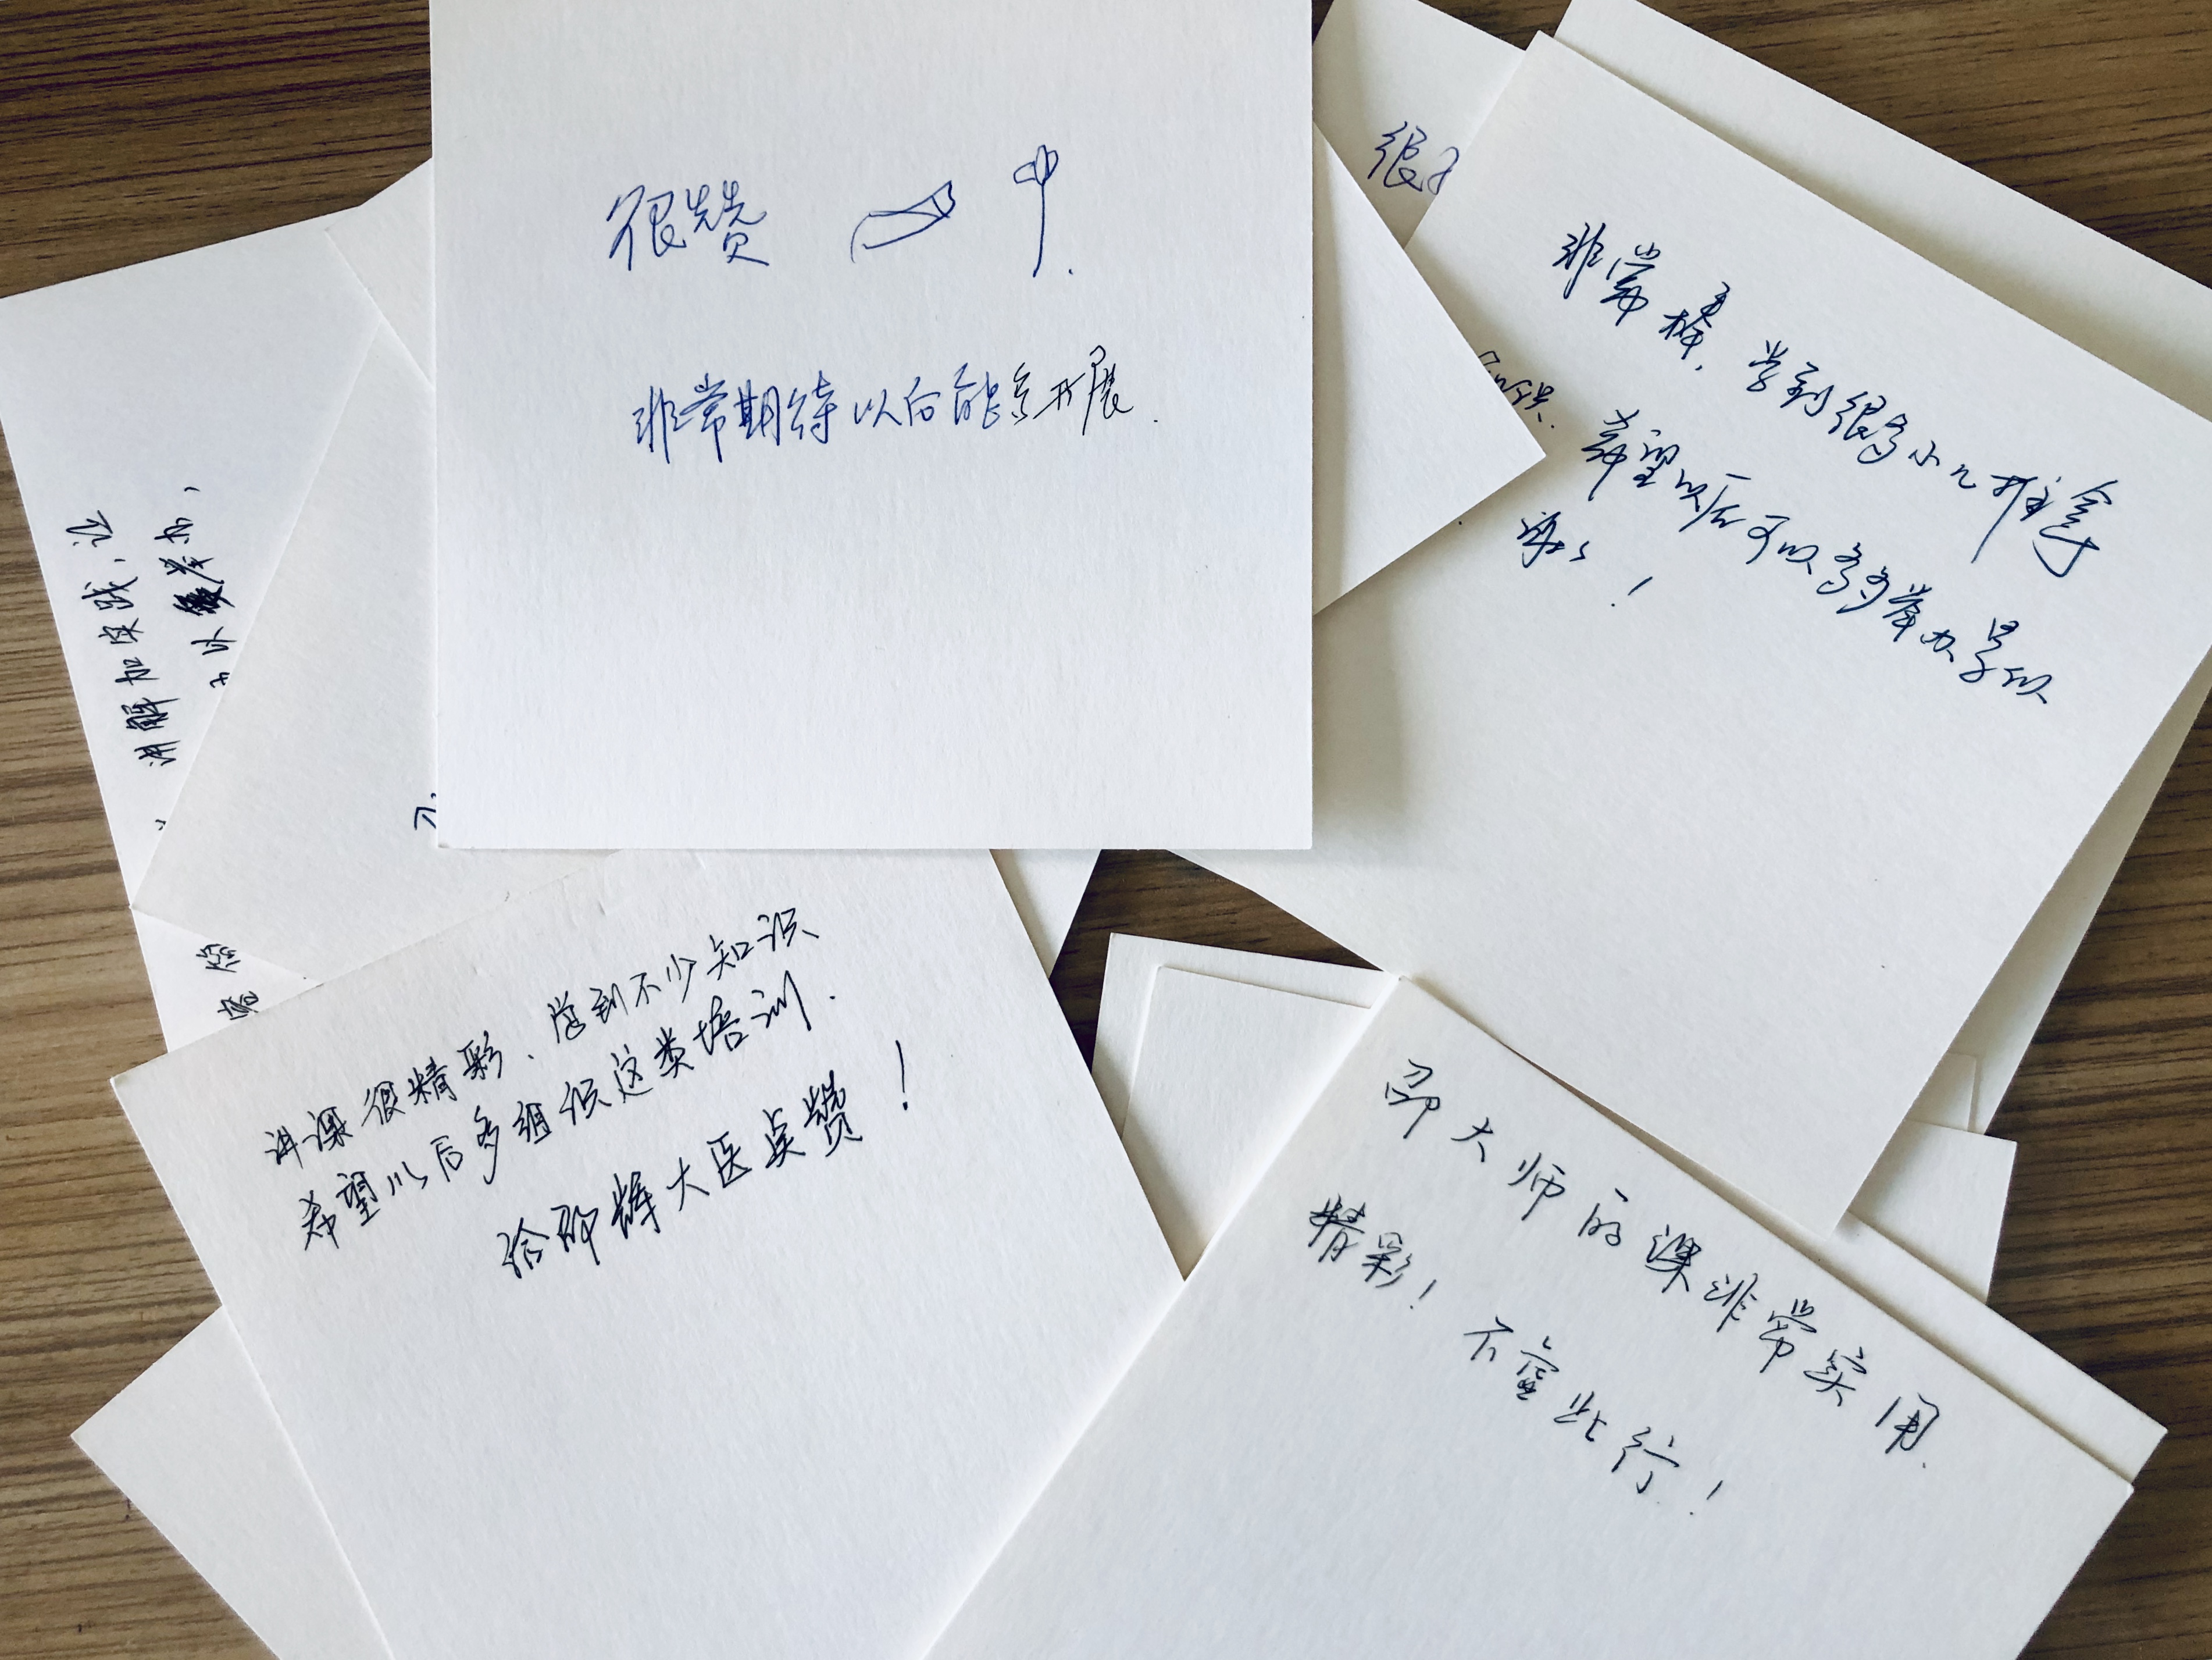 很赞
非常期待以后能多开展.
很
非常棒，学到很多小儿推拿
知识.
希望以后可以多多举办录以
讲解加实践，让
可以
讲课很精彩、学到不少知识
希望以后多组织这类培训.
给邵辉大医点赞！
邵大师的课非常实用.
精彩！不虚此行！